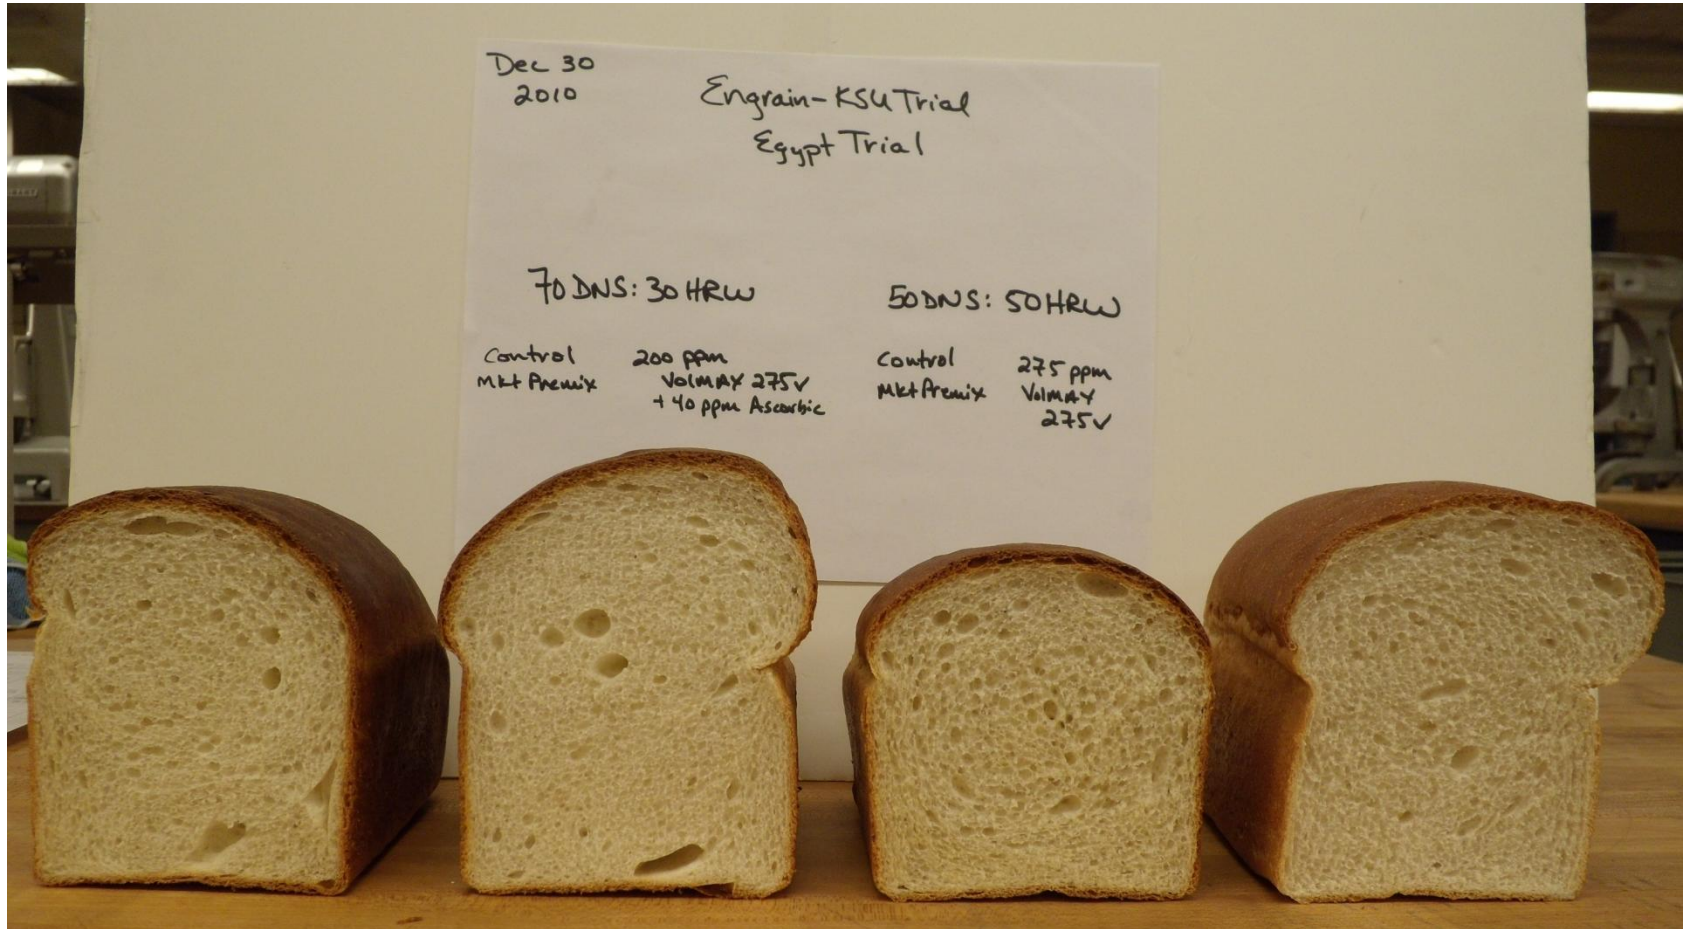 Dec 30
2010
Engrain-KSU Trial
Egypt Trial
70 DNS: 30 HRW
Control
Mkt Premix
200 ppm
VolMAX 275V
+ 40 ppm Ascorbic
50 DNS: 50 HRW
Control
Mkt Premix
275 ppm
VolMAX
275V